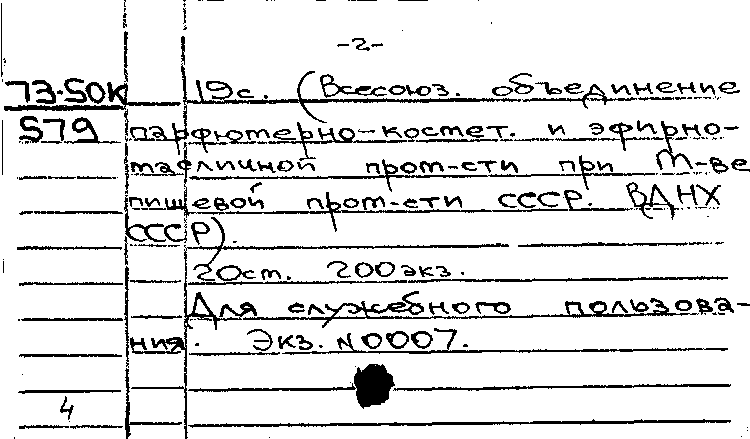 -2-
73-50К 19с. (Всесоюз. объединение
579 парфюмерно-космет. и эфирно-
масличной пром-сти при М-ве
пищевой пром-сти СССР. ВДНХ
СССР).
20см. 200экз.
Для служебного пользова-
ния. Экз. N0007.
4